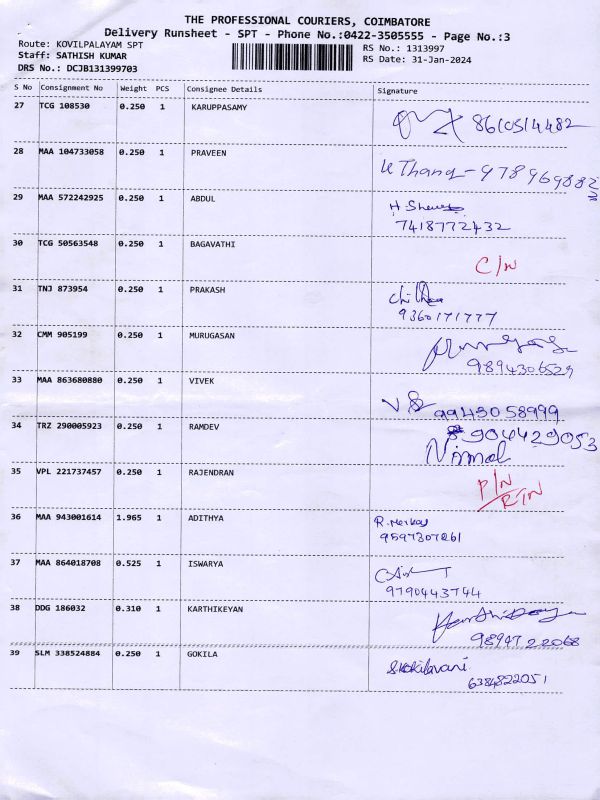 THE PROFESSIONAL COURIERS, COIMBATORE
Delivery Runsheet - SPT - Phone No.:0422-3505555 - Page No.:3
Route: KOVILPALAYAM SPT
Staff: SATHISH KUMAR
DRS No.: DCJB131399703
RS No.: 1313997
RS Date: 31-Jan-2024
S No Consignment No Weight PCS Consignee Details Signature
27 TCG 108530 0.250 1 KARUPPASAMY
8610514482
28 MAA 104733058 0.250 1 PRAVEEN
K Thang - 9789698823
29 MAA 572242925 0.250 1 ABDUL
7418772432
30 TCG 50563548 0.250 1 BAGAVATHI
C/N
31 TNJ 873954 0.250 1 PRAKASH
9360171777
32 CMM 905199 0.250 1 MURUGASAN
9894306529
33 MAA 863680880 0.250 1 VIVEK
9943058999
34 TRZ 290005923 0.250 1 RAMDEV
904429053
Nirmal
35 VPL 221737457 0.250 1 RAJENDRAN
P/N
RTN
36 MAA 943001614 1.965 1 ADITHYA
9597307261
37 MAA 864018708 0.525 1 ISWARYA
9790443744
38 DDG 186032 0.310 1 KARTHIKEYAN
9894722068
39 SLM 338524884 0.250 1 GOKILA
S.Kokilavani
6384822051